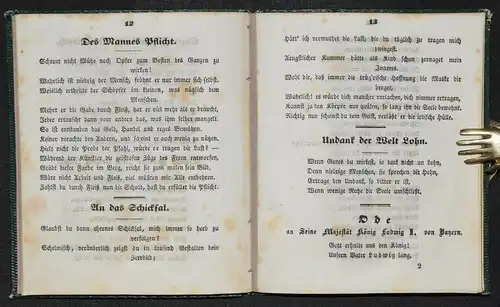 12
Des Mannes Pflicht.
Scheut nicht Mühe noch Opfer zum Besten des Ganzen zu
wirken!
Wahrlich ist niedrig der Mensch, fröhnt er nur immer sich selbst.
Weislich ertheilet der Schöpfer im kleinen, was nützlich dem
Menschen.
Mehrt er die Gabe durch Fleiß, hat er viel mehr als er braucht,
Jeder ertauscht dann vom andern das, was ihm selber mangelt.
So ist entstanden das Geld, Handel und reges Bemühen.
Keiner verachte den Andern, und scheint er auch wenig zu nützen,
Hielt nicht die Probe der Pfahl, würde er tragen die Last? —
Während der Künstler die geistigen Züge des Freien entworfen,
Gräbt dieser Farbe im Berg, reicht sie zum malen sein Bild.
Wäre nicht Arbeit und Fleiß, wir müßten Alle entbehren.
Ziehst du durch Fleiß nun die Schale, hast du erfüllet die Pflicht.
An das Schicksal.
Glaubst du dann ehernes Schicksal, mich immer so hart zu
verfolgen!
Schelmisch, veränderlich zeigst du in tausend Gestalten dein
Zerrbild;
13
Hätt' ich vermuthet die Last, die du täglich zu tragen mich
zwingest.
Aengstlicher Kummer hätte als Kind schon zernaget mein
Inneres.
Wohl dir, daß immer die trüg'rische Hoffnung die Maske dir
borget.
Wahrlich! es würde dich mancher verlachen, dich nimmer ertragen,
Kannst ja den Körper nur quälen, so lang ihn die Welt bewohnt.
Richtig nur scheinst du dem Geist, verläßt er die irdische Hülle.
Undank der Welt Lohn.
Wenn Gutes du wirkest, so denk nicht an Lohn,
Denn niedrige Menschen, sie sprechen dir Hohn,
Ertrage den Undank, so bitter er ist,
Wenn wenige Ruhe die Seele umschließt.
Ode
an Seine Majestät König Ludwig I. von Bayern.
Gott erhalte uns den König!
Unsern Vater Ludwig lang,
2